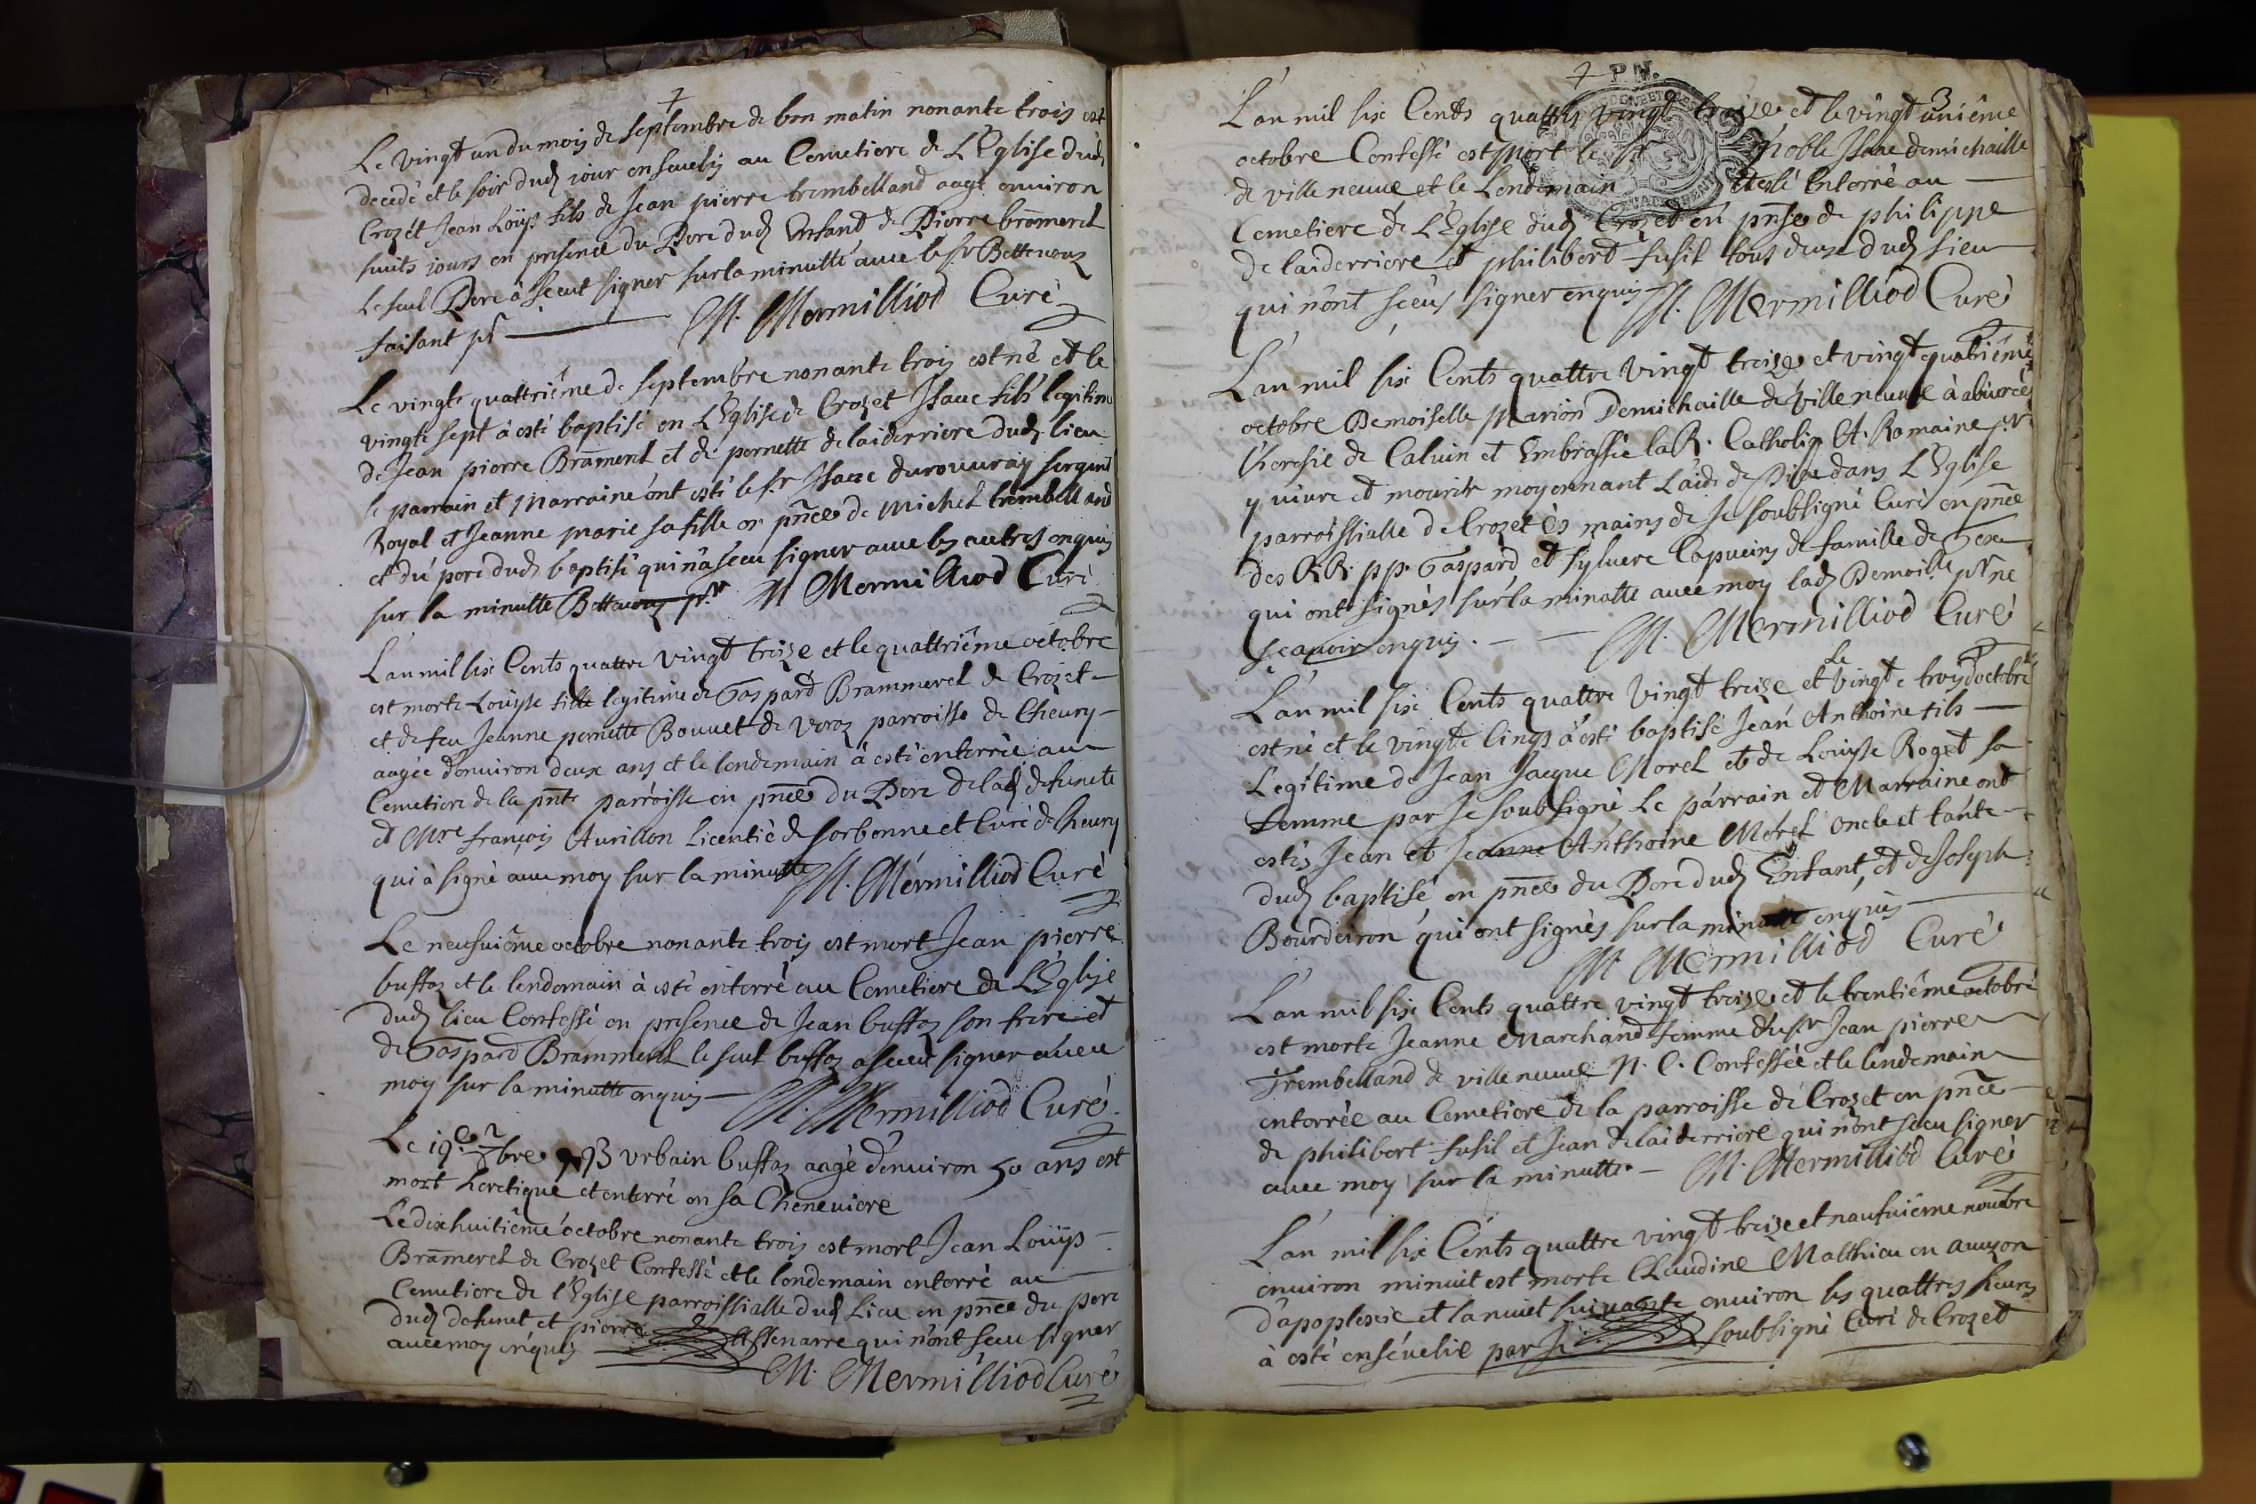 +
Le vingt un du mois de septembre de bon matin nonante trois est
decedé et le soir dud jour ensevely au Cemetiere de L'Eglise dud
Crozet Jean Loüys fils de Jean pierre trembelland aagé environ
huits jours en presence du Pere dud Enfant de Pierre bramerel
le seul Pere à sceut signer sur la minutte avec le sr Bettewoy
faisant pr M. Mermilliod Curé
Le vingte quattriême de septembre nonante trois est né et le
vingte sept à esté baptisé en L'Eglise de Crozet Isaac fils legitime
de Jean pierre Brament et de pernette de laiderriere dud lieu
le parrain et Marraine ont esté le sr Isaac durouvray sergent
Royal et Jeanne marie sa fille en pñce de Michel trembelland
et du pere dud baptisé qui n'a sceu signer avec les autres enquis
sur la minutte M Mermilliod Curé
L'an mil six Cents quattre vingt treize et le quattriême octobre
est morte Louyse fille legitime de Gaspard Brammerel de Crozet
et de feu Jeanne pernette Bouvet de Veroz parroisse de Chevry
aagée d'environ deux ans et le lendemain à esté enterrée au
Cemetiere de la pñte parroisse en pñce du Pere de lad defuncte
et Mre françois Aurillon Licentié de sorbonne et Curé de Chevry
qui à signé avec moy sur la minutte M. Mermilliod Curé
Le neufuiême octobre nonante trois est mort Jean pierre
buffaz et le lendemain à esté enterré au Cemetiere de L'Eglise
dud lieu Confessé en presence de Jean buffaz son frere et
de Gaspard Brammerel le seul buffaz a sceut signer avec
moy sur la minutte enquis M. Mermilliod Curé
Le 19e bre 93 urbain buffaz aagé d'environ 50 ans est
mort heretique et enterré en sa Cheneviere
Le dixhuitiême octobre nonante trois est mort Jean Loüys
Bramerel de Crozet Confessé et le londemain enterré au
Cemetiere de l'Eglise parroissialle dud Lieu en pñce du pere
dud defunct et pierre Assenarre qui n'ont sceu signer
avec moy enquis
M. Mermilliod Curé
+ P.N.
3
L'an mil six Cents quattre vingt treize et le vingt uniême
octobre Confessé est mort le sr Noble Isaac demichaille
de villeneuve et le Lendemain à esté Enterré au
Cemetiere de L'Eglise dud Crozet en pñse de philippe
de laiderriere et philibert fusil tous deux dud lieu
qui n'ont sceus signer enquis M. Mermilliod Curé
L'an mil six Cents quattre vingt treize et vingt quatriême
octobre Demoiselle Marion Demichaille de villeneuve à abiuré
l'heresie de Calvin et Embrassée la R. Catholiq A. Romaine pr
y vivre et mourir moyennant L'aide de Dieu dans L'Eglise
parroissialle de Crozet és mains de Je soubsigné Curé en pñce
des RR. pp. Gaspard et sylvere Capucins de famille de Gex
qui ont signés sur la minatte avec moy lad Demoille pr ne
sçavoir enquis. M. Mermilliod Curé
L'an mil six Cents quattre vingt treize et le vingte trois d'octobre
est né et le vingte Cinqs à esté baptisé Jean Anthoine fils
Legitime de Jean Jacque Morel et de Louyse Roget sa
femme par Je soubsigné Le parrain et Marraine ont
estés Jean et Jeanne Anthoine Morel oncle et tante
dud baptisé en pñce du Pere dud Enfant, et de Joseph
Bourdeiron qui ont signés sur la minutte enquis
M Mermilliod Curé
L'an mil six Cents quattre vingt treize et le trentiême octobre
est morte Jeanne Marchand femme du sr Jean pierre
Trembelland de villeneuve N. C. Confessée et le lendemain
enterrée au Cemetiere de la parroisse de Crozet en pñce
de philibert fusil et Jean de laiderriere qui n'ont sceu signer
avec moy sur la minutte. M. Mermilliod Curé
L'an mil six Cents quattre vingt treize et neufuiême novbre
environ minuit est morte Claudine Matthieu en auvzon
d'apoplexie et la nuiet suivante environ les quattres heures
à esté ensévelie par Je soubsigné Curé de Crozet